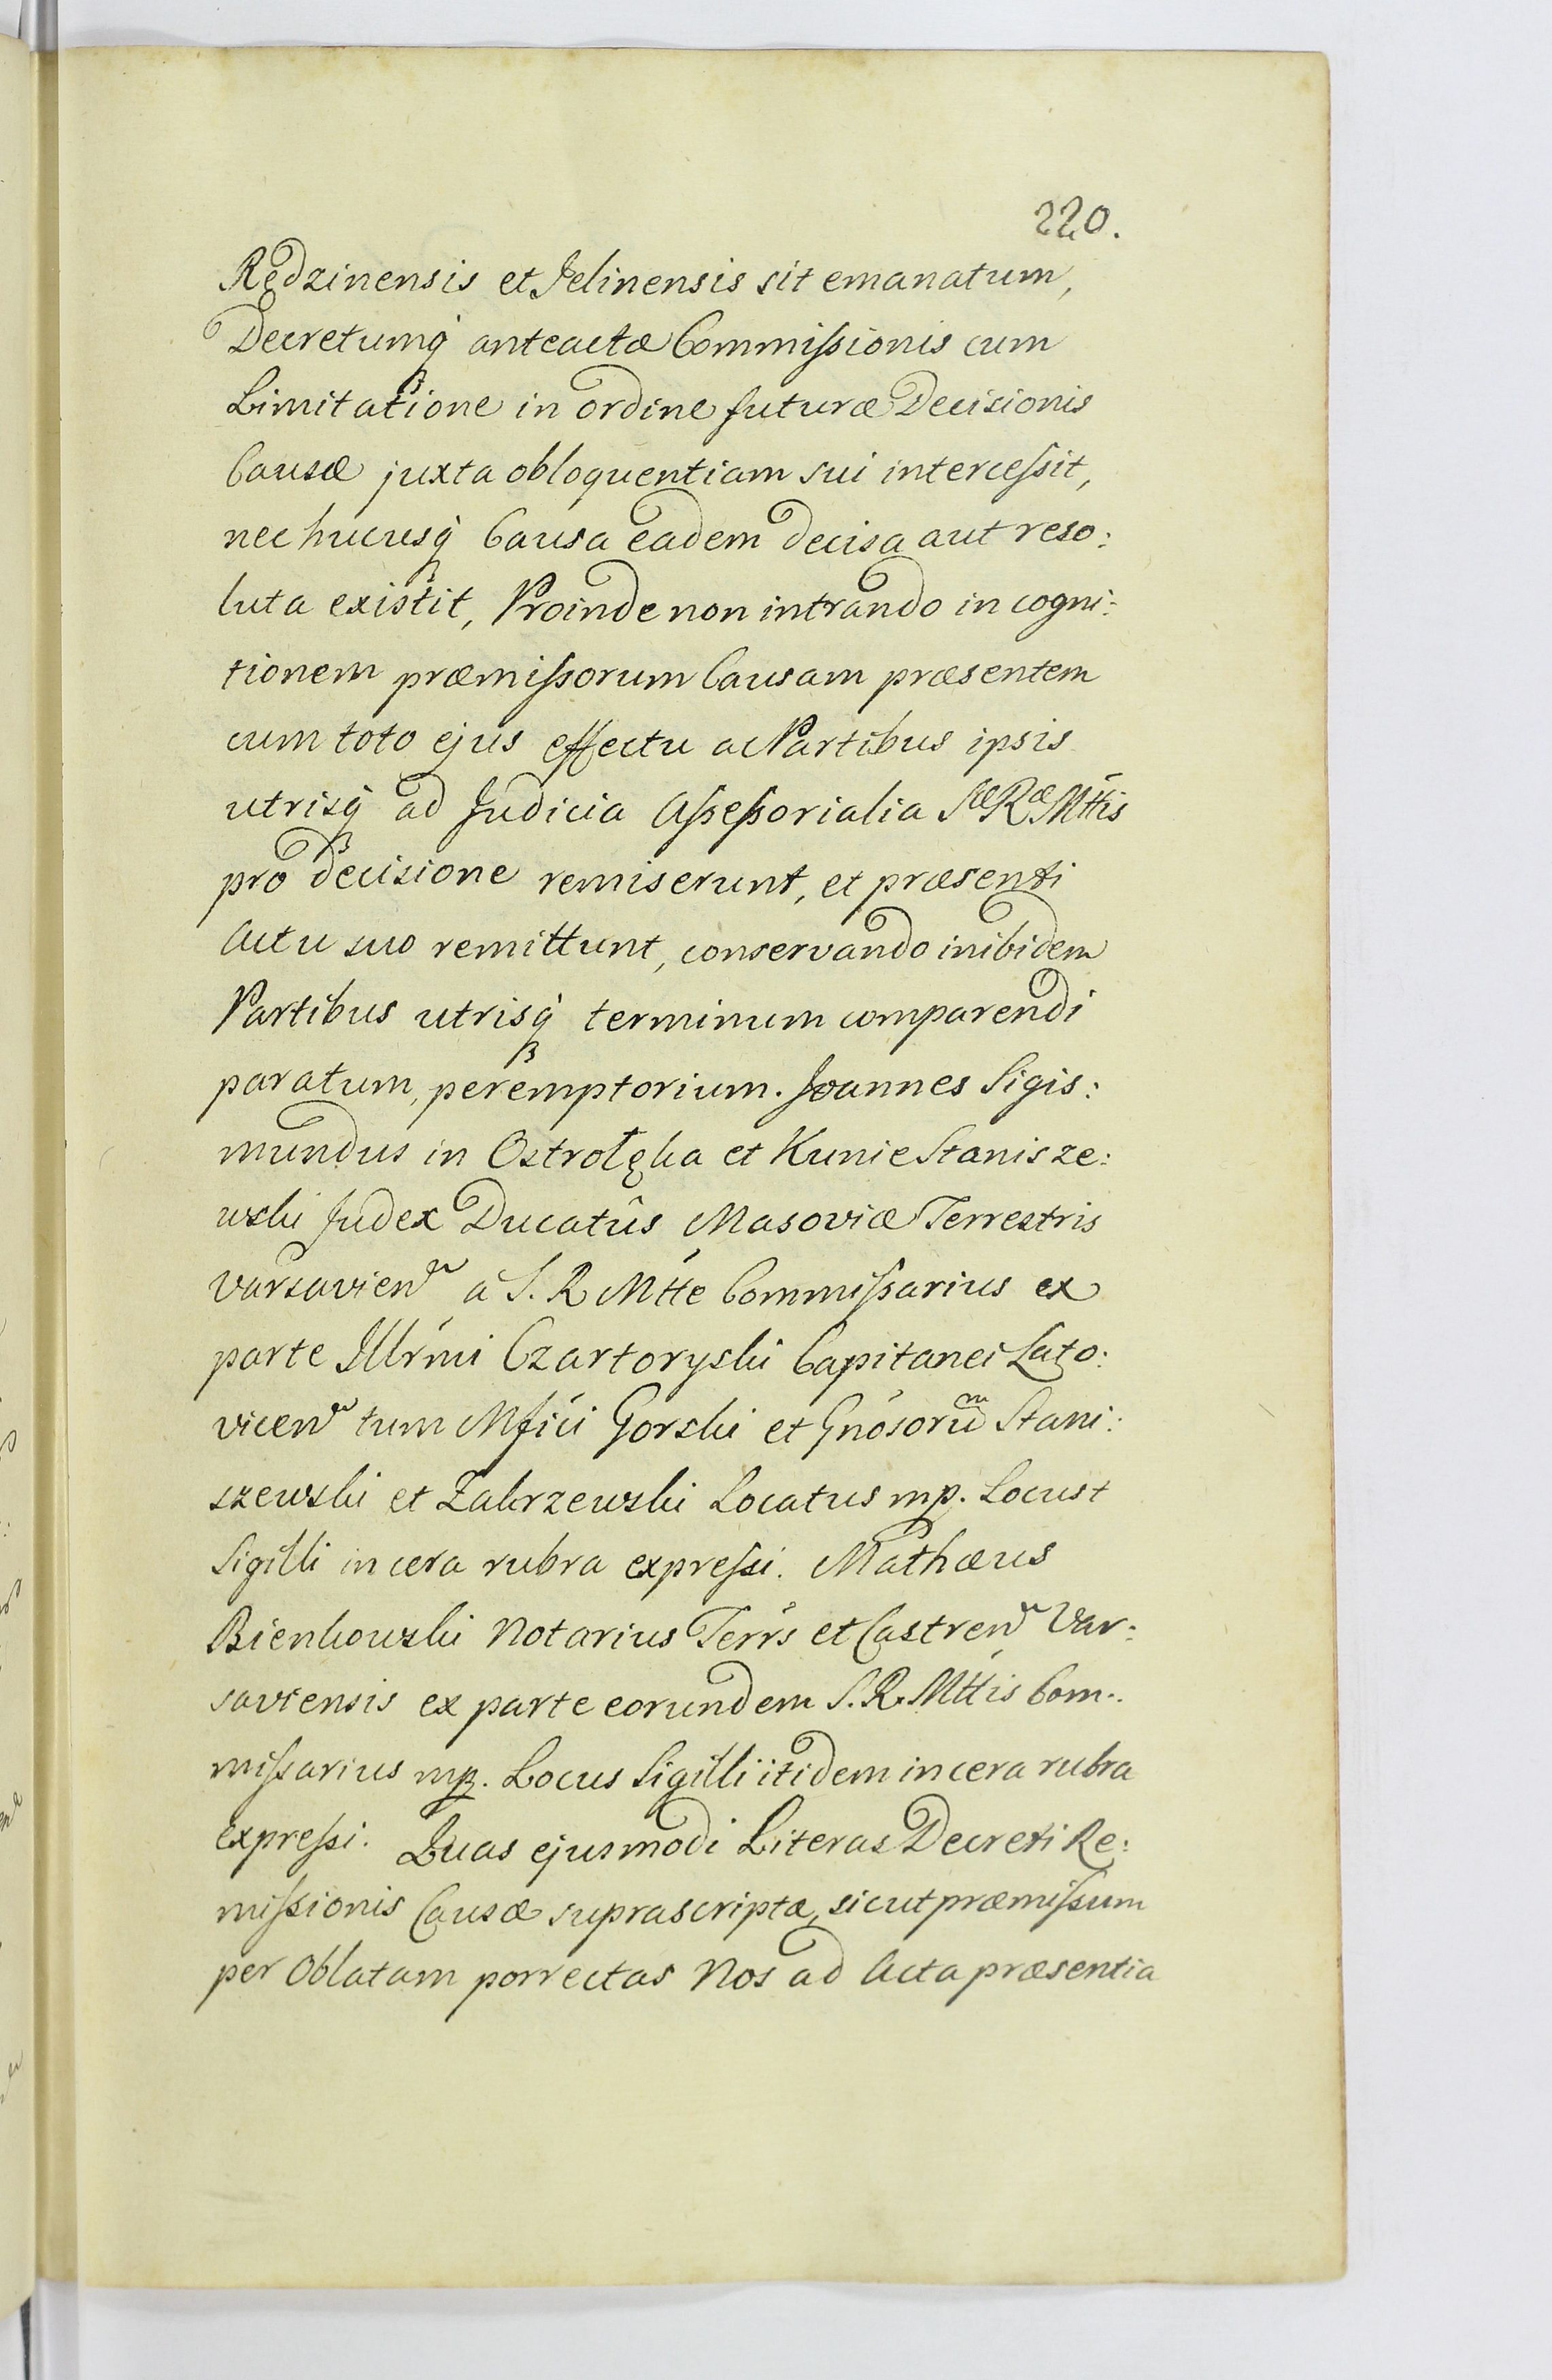 220.
Rędzinensis et Jelinensis sit emanatum,
Decretumq́ anteactæ Commiſsionis cum
Limitatione in ordine futuræ Decisionis
Causæ juxta obloquentiam sui interceſsit,
nec hucusq́ Causa eadem decisa aut reso:
luta existit, Proinde non intrando in cogni:
tionem præmiſsorum Causam præsentem
cum toto ejus effectu ac Partibus ipsis
utrisq́ ad Judicia Aſseſsorialia Sæ Ræ Mttis
pro decisione remiserunt, et præsenti
Actu suo remittunt, conservando inibidem
Partibus utrisq́ terminum comparendi
paratum, peremptorium. Joannes Sigis:
mundus in Ostrołęka et Kunie Stanisze:
wski Judex Ducatûs Masoviæ Terrestris
Varsavien̄ a S. R Mtte Commiſsarius ex
parte Illrmi Czartoryski Capitanei Łato:
vicen̄ tum Mfici Gorski et Gnosorum Stani:
szewski et Zakrzewski Locatus mp. Locus +
Sigilli in cera rubra expreſsi. Mathæus
Bienkowski Notarius Terrs et Castren̄ Var:
saviensis ex parte eorundem S. R. Mttis Com:
miſsarius mp. Locus Sigilli itidem in cera rubra
expreſsi. Quas ejusmodi Literas Decreti Re:
miſsionis Causæ suprascriptæ, sicut præmiſsum
per Oblatam porrectas Nos ad Acta præsentia